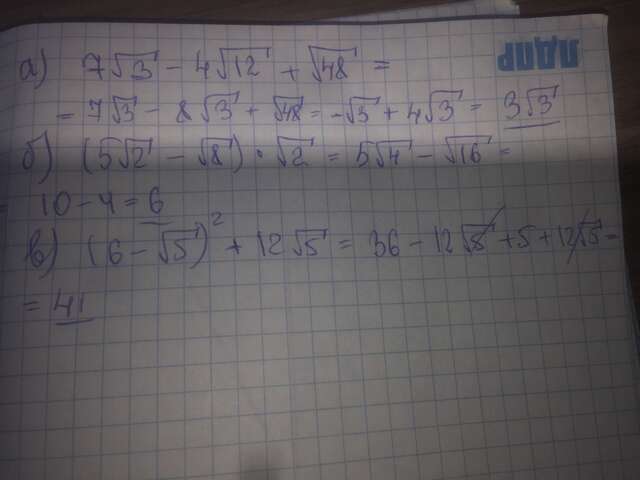 а) 7√3 - 4√12 + √48 =
= 7√3 - 8√3 + √48 = -√3 + 4√3 = 3√3
б) (5√2 - √8) · √2 = 5√4 - √16 =
10 - 4 = 6
в) (6 - √5)² + 12√5 = 36 - 12√5 + 5 + 12√5 =
= 41
ЛДПР